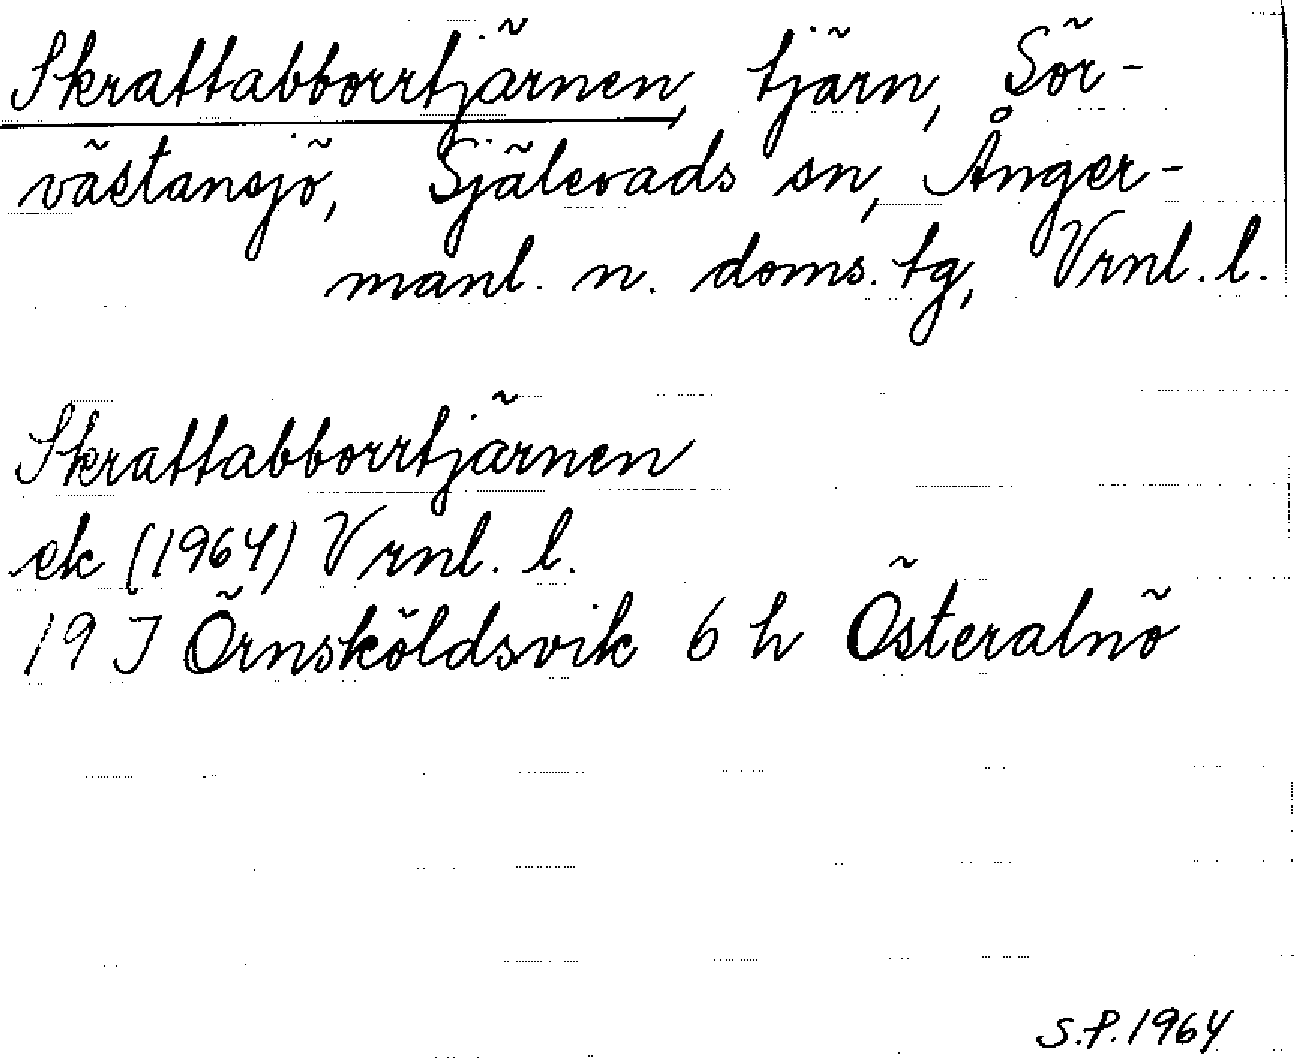 Skrattabborrtjärnen, tjärn, Sör-
västansjö, Själevads sn, Ånger-
manl. n. doms. tg, Vrnl. l.
Skrattabborrtjärnen
ek (1964) Vrnl. l.
19 J Örnsköldsvik 6 h Österalnö
S.P. 1964